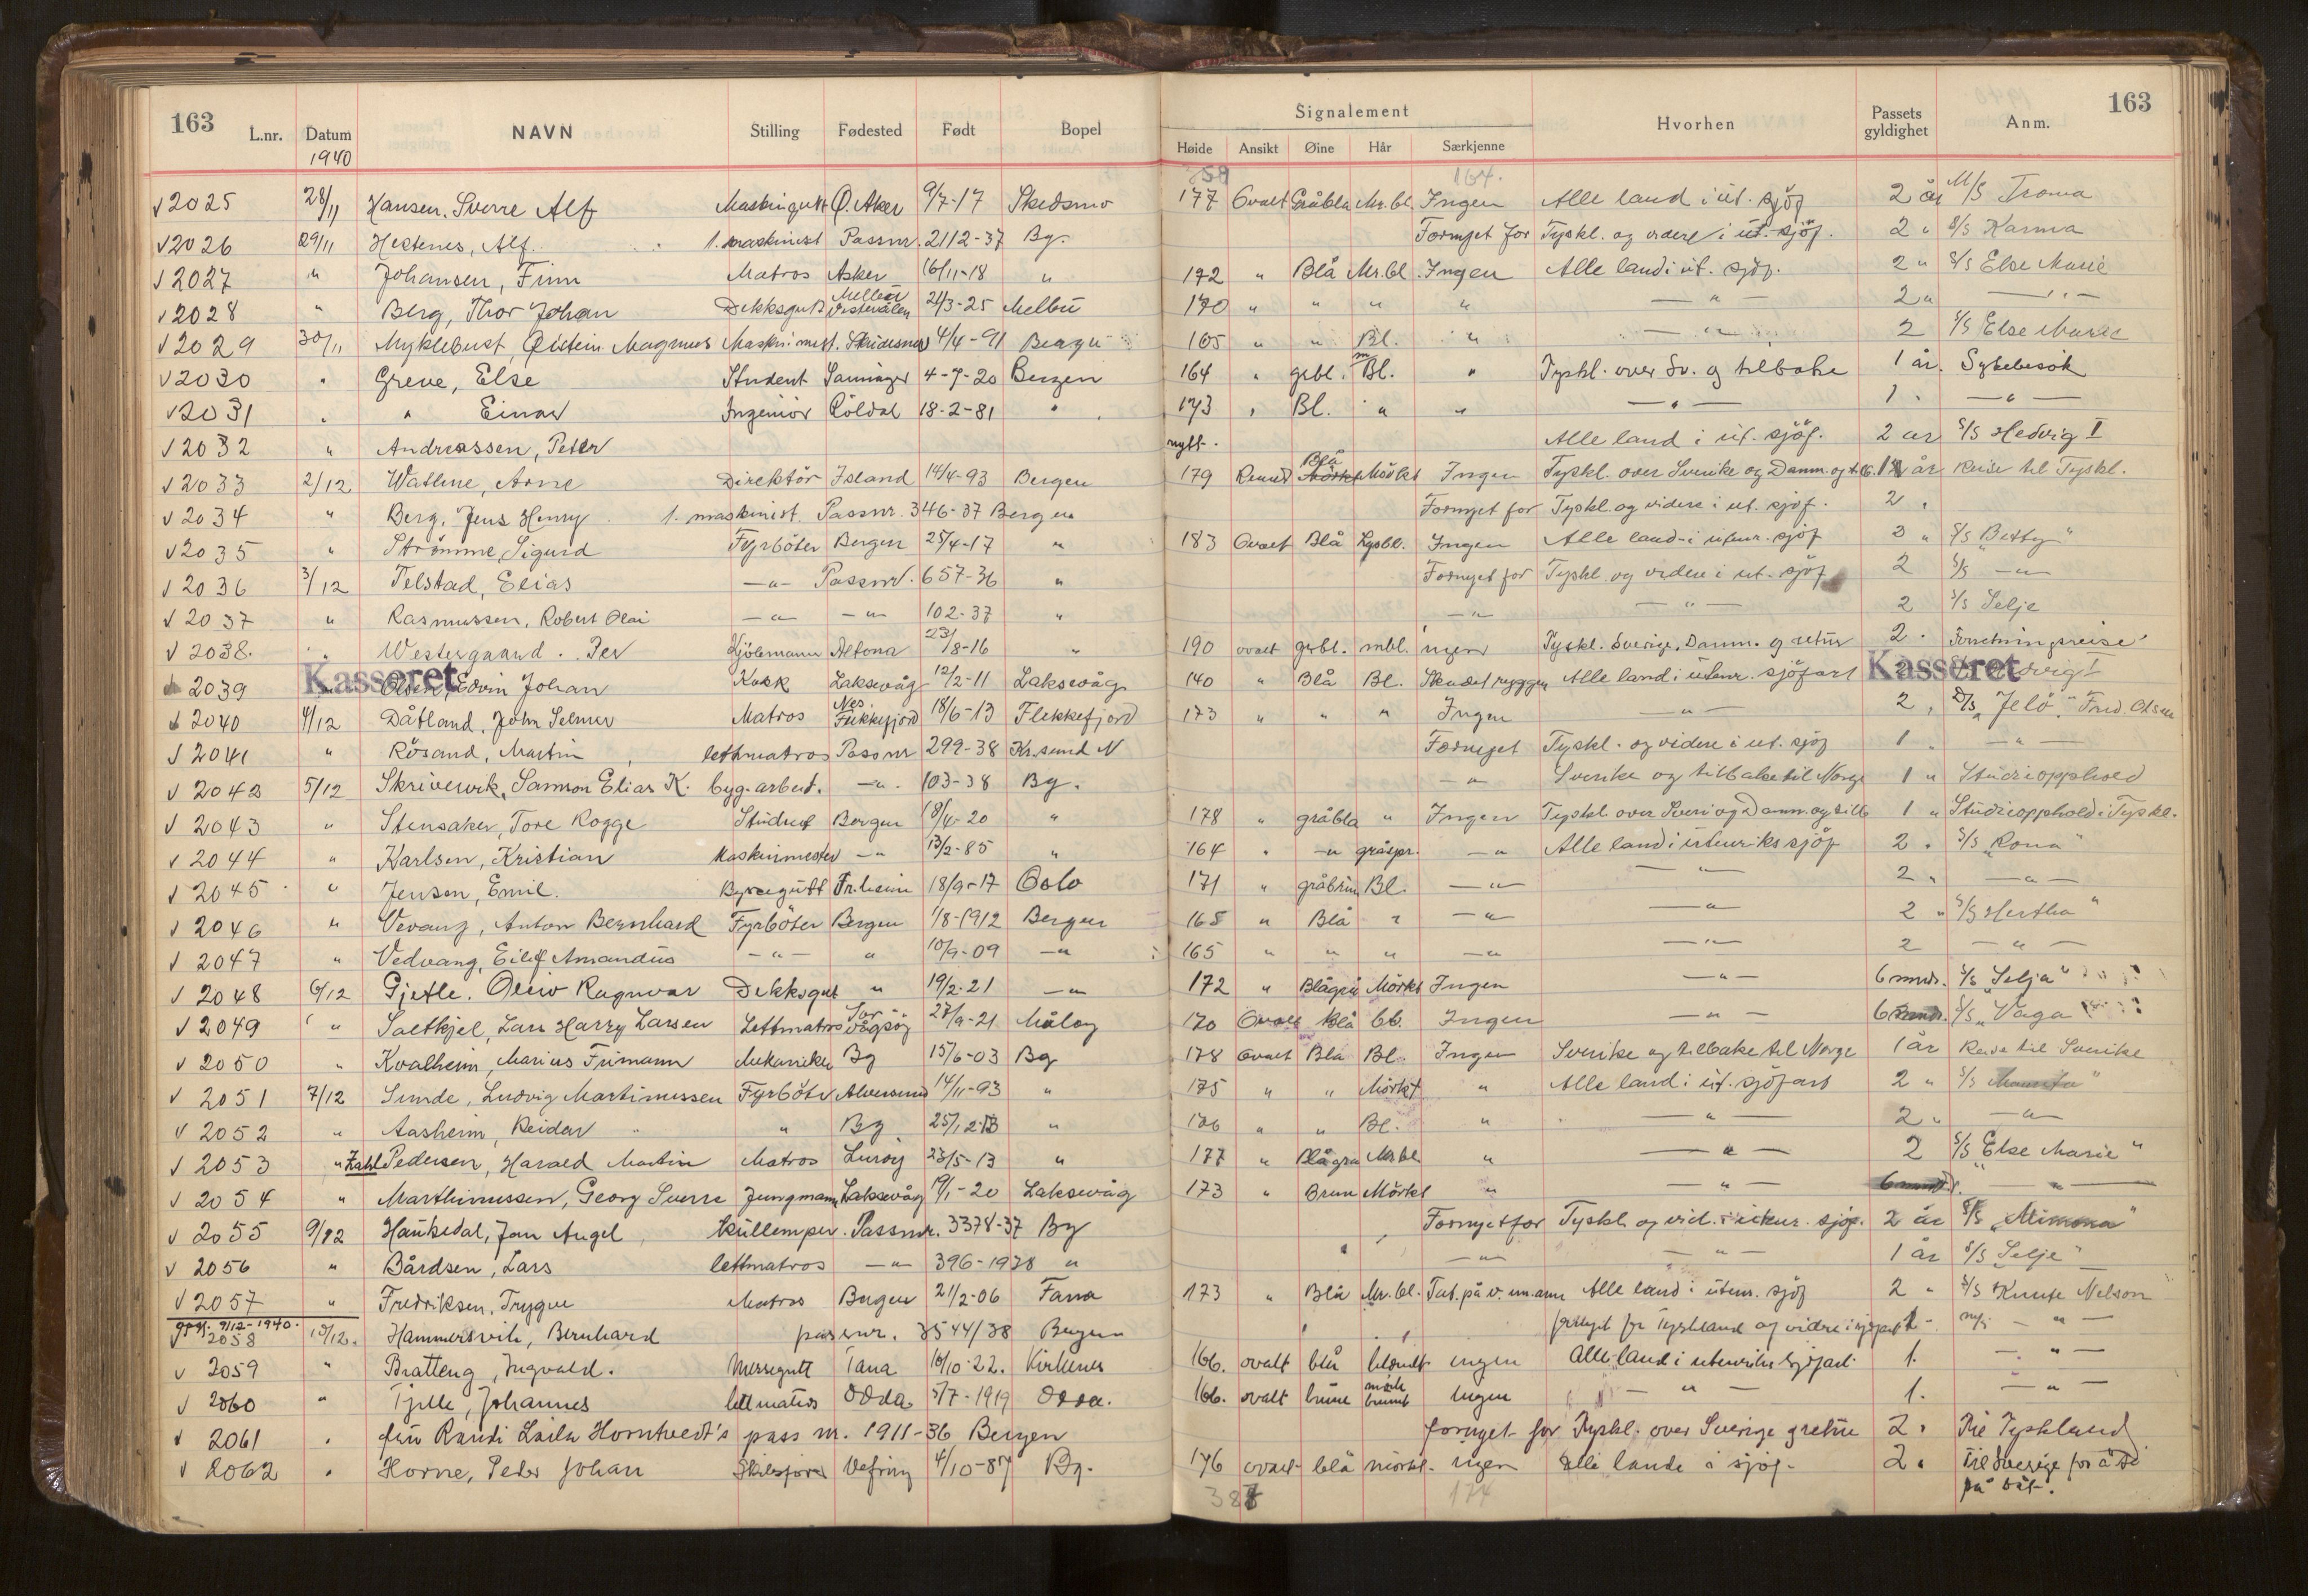 163 163
Signalement
L.nr. Datum NAVN Stilling Fødested Født Bopel Høide Ansikt Øine Hår Særkjenne Hvorhen Passets gyldighet Anm.
1940
359 164.
√ 2025 28/11 Hansen, Sverre Alf Maskingutt Ø. Aker 9/7-17 Skedsmo 177 Ovalt Gråblå Mr. bl. Ingen Alle land i ut. sjöf 2 år M/S Troma
√ 2026 29/11 Hestenes, Alf. 1. maskinist Passnr. 2112-37 Bg. Fornyet for Tyskl. og videre i ut. sjöf. 2 " S/S Karma
√ 2027 " Johansen, Finn Matros Asker 16/11-18 " 172 " Blå Mr. bl. Ingen Alle land i ut. sjöf. 2 " S/S Else Marie
√ 2028 " Berg, Thor Johan Dekksgutt Melbu Vesterålen 24/3-25 Melbu 170 " " " " — " — 2 " — " —
√ 2029 30/11 Myklebust, Öistein Magnus Maskinmest. 4/4-91 Bergen 165 " " Bl. " — " — 2 S/S Else Marie
√ 2030 " Greve, Else Student 4-7-20 Bergen 164 " grbl. m Bl. " Tyskl. over Sv. og tilbake 1 år. Sykebesök
√ 2031 " " Einar Ingeniör Röldal 18-2-81 " 173 " Bl. " " — " — 1 " — " —
√ 2032 " Andreassen, Peter nytt. Alle land i ut. sjöf. 2 år S/S Hedvig I
√ 2033 2/12 Wathne, Arne Direktör Island 14/4-93 Bergen 179 Rund Blå Mörkt Ingen Tyskl. over Sverike og Danm. og tilb. 1 år Reise til Tyskl.
√ 2034 " Berg, Jens Henry 1. maskinist. Passnr. 346-37 Bergen Fornyet for Tyskl. og videre i ut. sjöf. 2 "
√ 2035 " Strömme, Sigurd Fyrböter Bergen 25/4-17 " 183 Ovalt Blå Lysbl. Ingen Alle land i utenr. sjöf 3 " S/S "Betty"
√ 2036 3/12 Telstad, Elias — " — Passnr. 657-36 " Fornyet for Tyskl. og videre i ut. sjöf 2 S/S — " —
√ 2037 " Rasmussen, Robert Olai — " — — " — 102-37 " — " — — " — 2 S/S Selje
√ 2038. " Westergaard. Per Kjölemann Altona 23/8-16 " 190 ovalt grbl. mbl. ingen Tyskl. Sverige, Danm. og retur 2 " Forretningsreise
2039 Kasseret Olsen, Edvin Johan Kokk Laksevåg 12/2-11 Laksevåg 140 " Blå Bl. Skadet ryggen Alle land i utenr. sjöfart Kasseret Hedvig I
2040 4/12 Dåtland, John Selmer Matros Nes. Flekkefjord 18/6-13 Flekkefjord 173 " " " Ingen — " — 2 " D/S "Jelö" Fred. Olsen
√ 2041 " Rösand, Martin lettmatros Passnr 299-38 Kr.sund N Fornyet Tyskl. og videre i ut. sjöf 1 " — " —
√ 2042 5/12 Skrivervik, Samson Elias K. byg.arbeid. — " — 103-38 Bg. — " — Sverike og tilbake til Norge 1 " Studieopphold
√ 2043 " Stensaker, Tore Rogge Student Bergen 18/4-20 " 178 " gråblå " Ingen Tyskl. over Sveri og Danm. og tilb 1 " Studieopphold i Tyskl.
√ 2044 " Karlsen, Kristian Maskinmester — " 13/2-85 " 164 " — " gråspr. — " Alle land i utenriks sjöf 2 " S/S "Rona"
√ 2045 " Jensen, Emil. Byssegutt Tr.heim 18/9-17 Oslo 171 " gråbrun Bl. — " — — " — 2 " — " —
√ 2046 " Vevang, Anton Bernhard Fyrböter Bergen 1/8-1912 Bergen 168 " Blå " — " — — " — 2 " S/S Hertha"
√ 2047 " Vedvang, Eilif Amandus — " — " 10/9-09 — " 165 " " " — " — " — 2 — " —
√ 2048 6/12 Gjetle. Oliv Ragnvar Dekksgut " 19/2-21 — " 172 " Blågrå Mörkt Ingen — " — 6 mndr. S/S "Selja"
√ 2049 " Saltkjel, Lars Harry Larsen Lettmatros Sör-vågsöy 27/9-21 Måløy 170 Ovalt Blå bl. Ingen — " — 6 mndr. S/S "Vaga"
√ 2050 " Kvalheim, Marius Frimann Mekaniker Bg 15/6-03 Bg 178 Ovalt Blå Bl. Ingen Sverike og tilbake til Norge 1 år Reise til Sverike
√ 2051 7/12 Sunde, Ludvig Martinussen Fyrböter Alversund 14/11-93 " 175 " " Mörkt " Alle land i ut. sjöfart 2 " S/S
√ 2052 " Aasheim, Reidar " Bg 25/12-13 " 176 " " Bl. " — " — 2 " — " —
√ 2053 " Zahl Pedersen, Harald Martin Matros Luröy 23/5-13 " 177 " Blågrå Mr. bl. " — " — 2 S/S "Else Marie"
√ 2054 " Marthinussen, Georg Sverre Jungmann Laksevåg 19/1-20 Laksevåg 173 " Brun Mörkt " — " — 6 mndr. — " —
√ 2055 9/12 Haukedal, Jan Angel kullemper. Passnr. 3378-37 Bg Fornyet for Tyskl. og vid. i utenr. sjöf. 2 år S/S "Mimona"
√ 2056 " Bårdsen, Lars lettmatros — " — 396-1938 " — " — — " — 1 år S/S "Selje"
√ 2057 " Fredriksen, Trygve Matros Bergen 21/2-06 Fana 173 " Blå Mr. bl. Tat. på v. un.arm Alle land i utenr. sjöf 2 " S/S Knute Nelson
9/12-1940.
√ 2058 10/12. Hammersvik, Bernhard passnr. 3544/38 Bergen fornyet for Tyskland og videre i sjöfart 1 — — " —
√ 2059 " Bratteng, Ingvald. Messegutt Tana 10/10-22. Kirkenes 166. ovalt blå blondt ingen Alle land i utenriks sjöfart. 1. — " —
√ 2060 " Tjelle, Johannes lettmatros Odda 5/7-1919 Odda. 166. ovalt brune mörk brunt Ingen — " — 1. — " —
√ 2061 " fru Randi Laila Horntvedt's pass nr. 1911-36 Bergen fornyet for Tyskl. over Sverige og retur 2 " Til Tyskland
√ 2062 " Horne, Peder Johan Skibsförer Vefring 4/10-87 Bg. 176 ovalt blå mörkt ingen alle lande i sjöf. 2 " Til Sverige for å se
på båt.
387 174